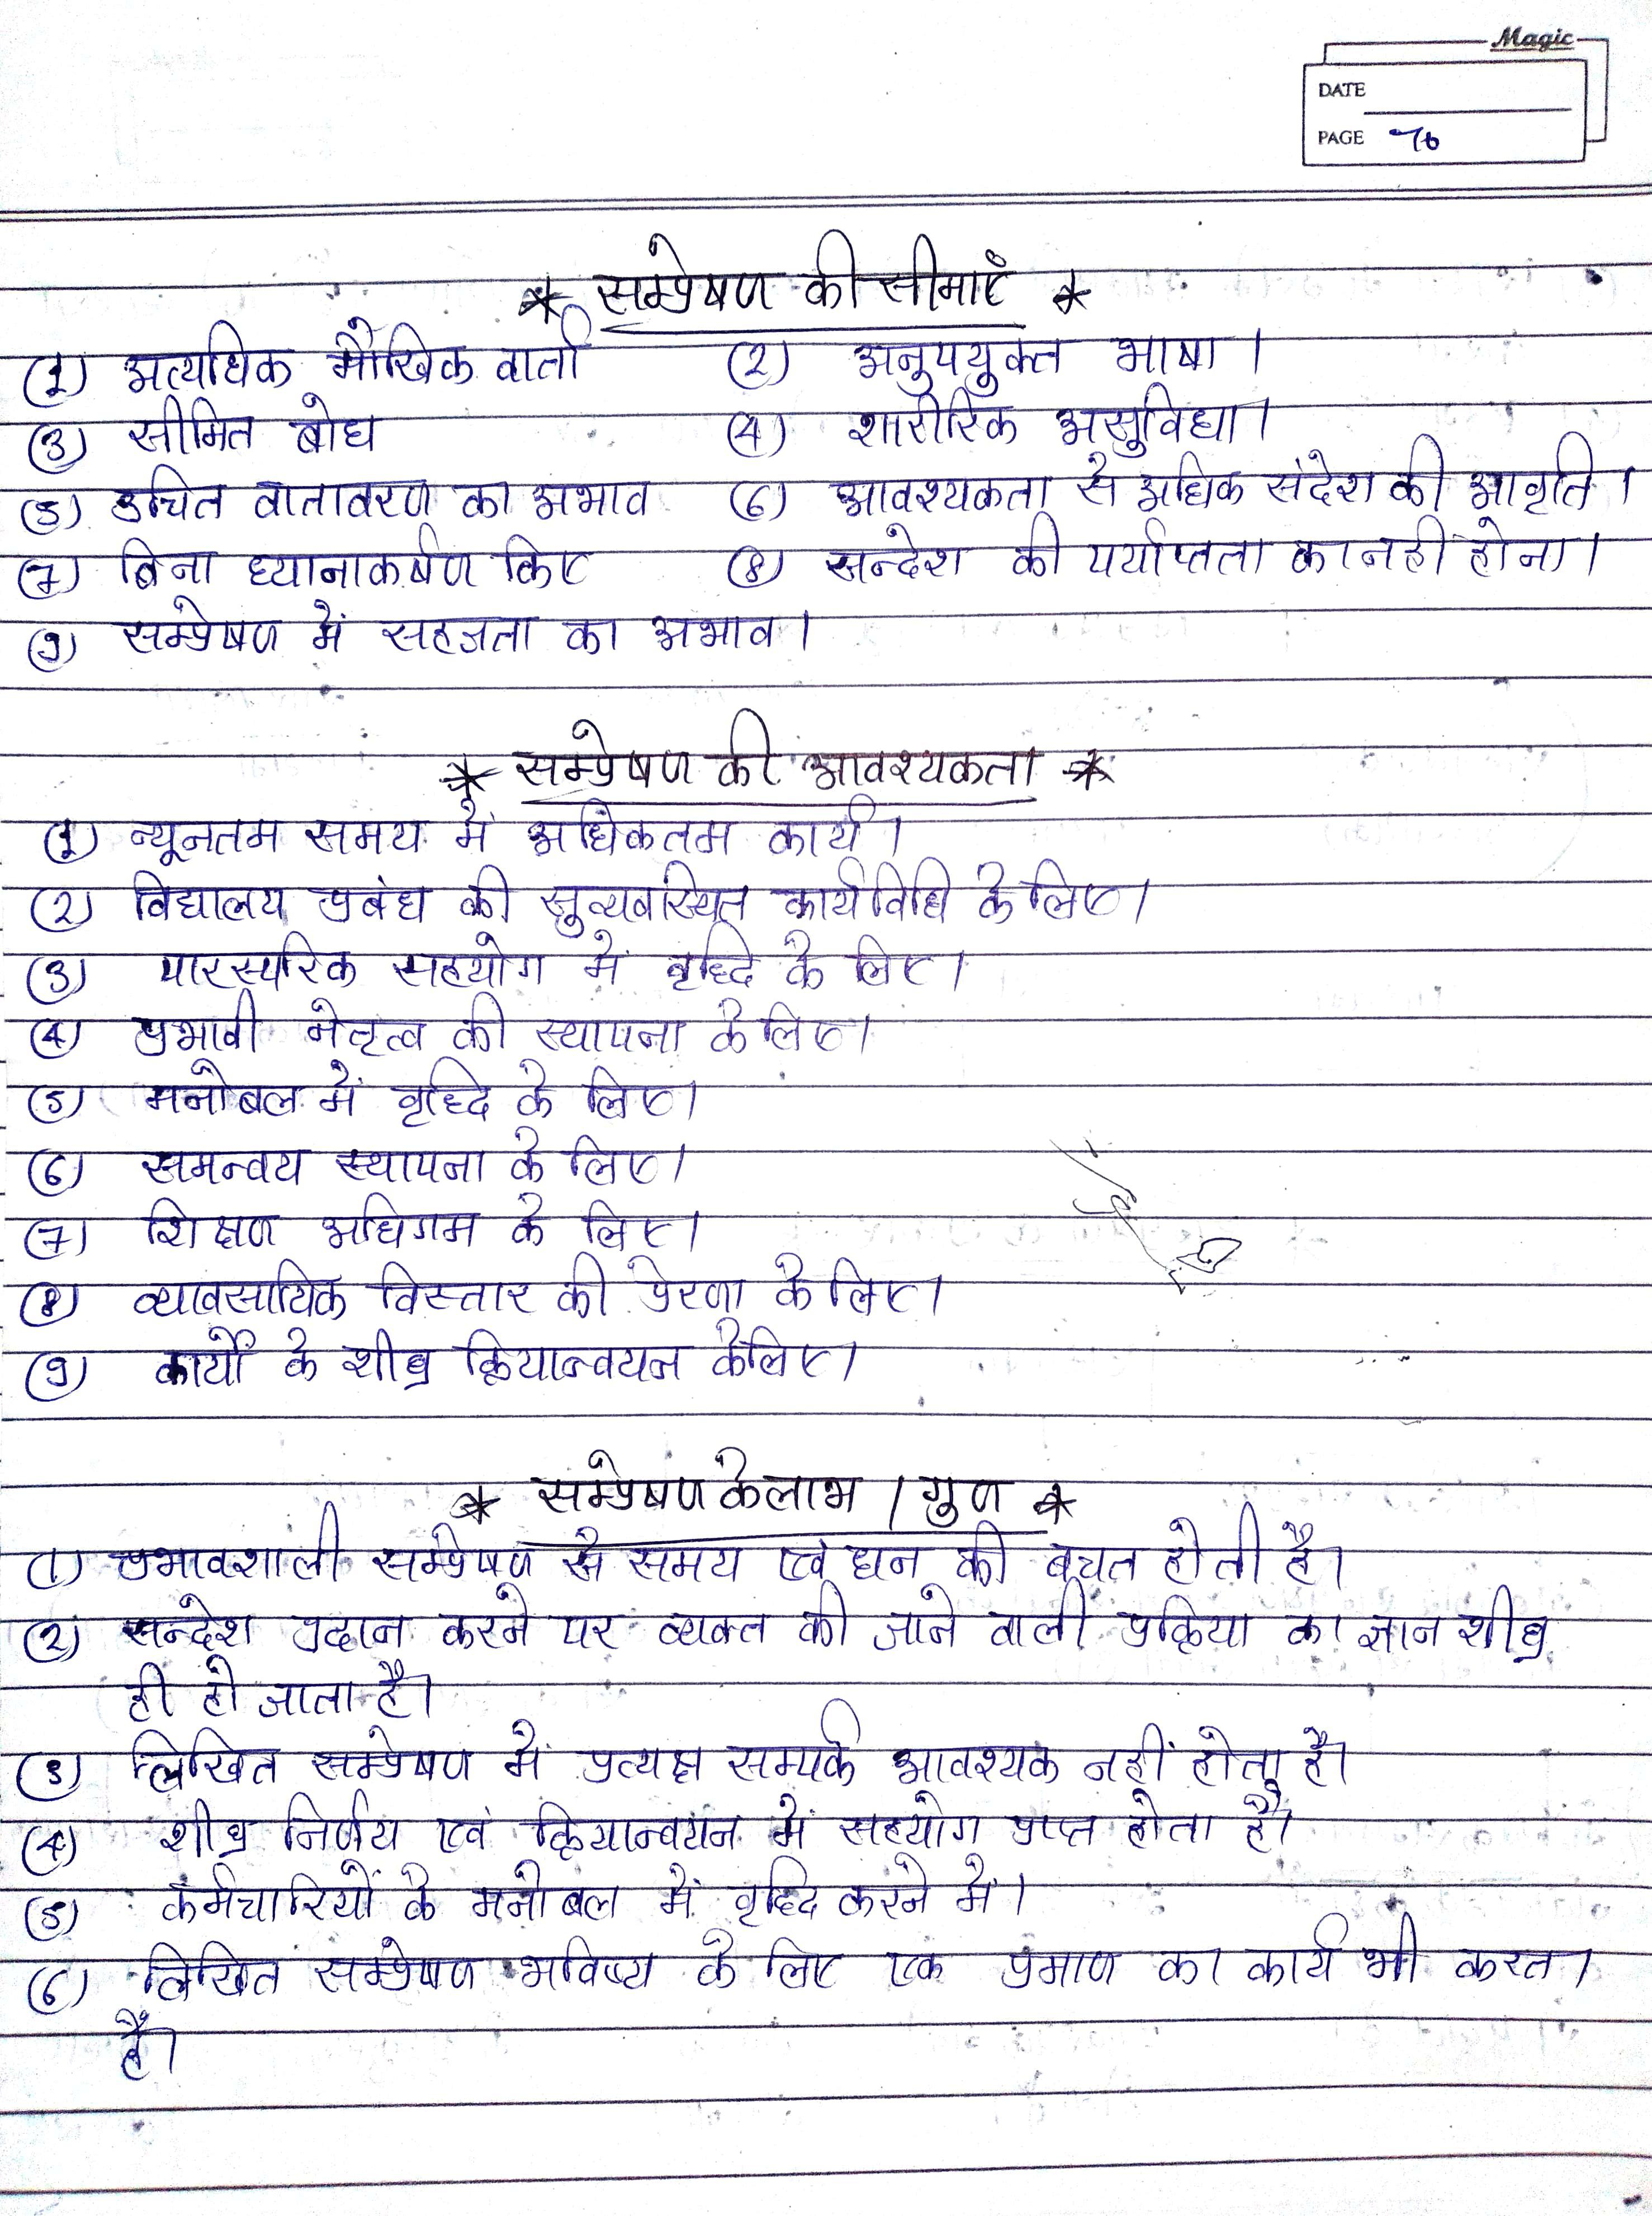 Magic
DATE
PAGE 76
* सम्प्रेषण की सीमाएं *
(1) अत्यधिक मौखिक वार्ता (2) अनुपयुक्त भाषा।
(3) सीमित बोध (4) शारीरिक असुविधा।
(5) उचित वातावरण का अभाव (6) आवश्यकता से अधिक संदेश की आवृति।
(7) बिना ध्यानाकर्षण किए (8) सन्देश की पर्याप्तता का नही होना।
(9) सम्प्रेषण में सहजता का अभाव।
* सम्प्रेषण की आवश्यकता *
(1) न्यूनतम समय में अधिकतम कार्य।
(2) विद्यालय प्रबंध की सुव्यवस्थित कार्यविधि के लिए।
(3) पारस्परिक सहयोग में वृध्दि के लिए।
(4) प्रभावी नेतृत्व की स्थापना के लिए।
(5) मनोबल में वृध्दि के लिए।
(6) समन्वय स्थापना के लिए।
(7) शिक्षण अधिगम के लिए।
(8) व्यावसायिक विस्तार की प्रेरणा के लिए।
(9) कार्यों के शीघ्र क्रियान्वयन के लिए।
* सम्प्रेषण के लाभ / गुण *
(1) प्रभावशाली सम्प्रेषण से समय एवं धन की बचत होती है।
(2) सन्देश प्रदान करने पर व्यक्त की जाने वाली प्रक्रिया का ज्ञान शीघ्र
ही हो जाता है।
(3) लिखित सम्प्रेषण में प्रत्यक्ष सम्पर्क आवश्यक नहीं होता है।
(4) शीघ्र निर्णय एवं क्रियान्वयन में सहयोग प्राप्त होता है।
(5) कर्मचारियों के मनोबल में वृध्दि करने में।
(6) लिखित सम्प्रेषण भविष्य के लिए एक प्रमाण का कार्य भी करता
है।